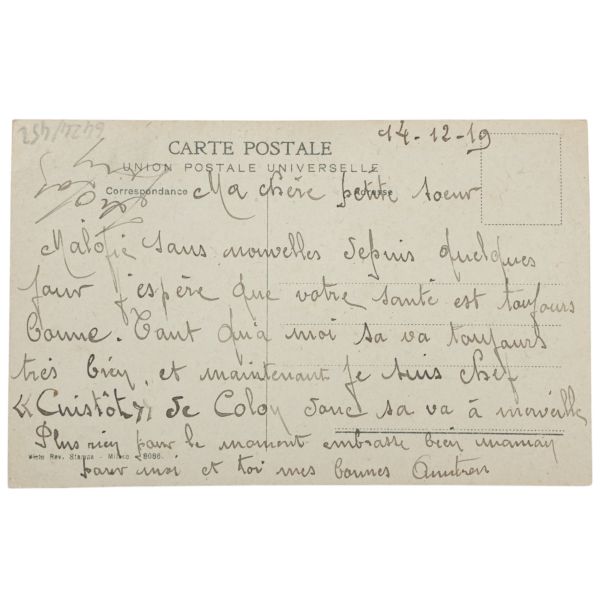 6424/452
14-12-19
CARTE POSTALE
UNION POSTALE UNIVERSELLE
Correspondance
Adresse
Ma chère petite soeur
Malgrè sans nouvelles depuis quelques
jour j'espère que votre santé est toujours
bonne. Tant qu'à moi sa va toujours
très bien, et maintenant je suis chef
« Cuistôt » de donc sa va à merveille
Plus rien pour le moment embrasse bien maman
pour moi et toi mes bonnes
Rev. Stampa - Milano 8086.